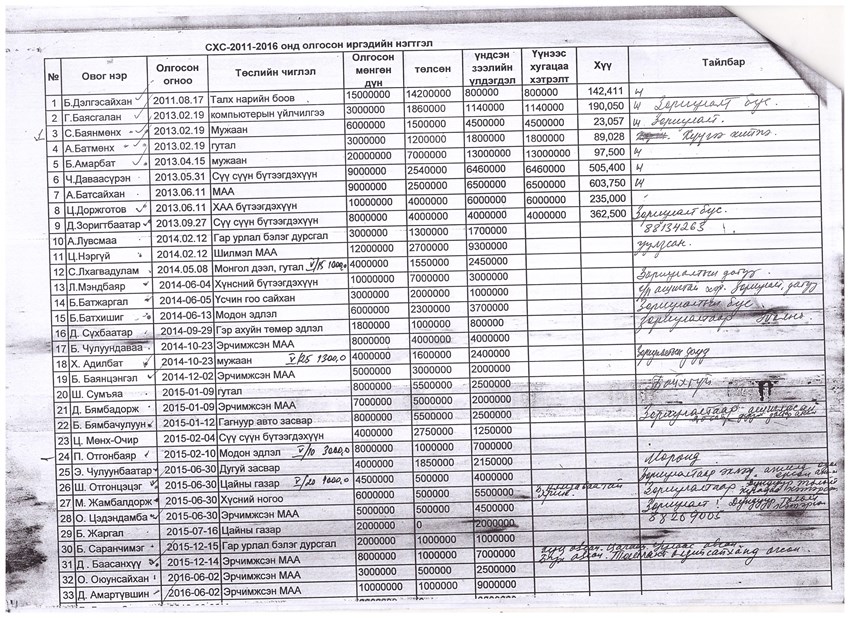 СХС-2011-2016 онд олгосон иргэдийн нэгтгэл
№ Овог нэр Олгосон огноо Төслийн чиглэл Олгосон мөнгөн дүн төлсөн үндсэн зээлийн үлдэгдэл Үүнээс хугацаа хэтрэлт Хүү Тайлбар
1 Б.Дэлгэсайхан 2011.08.17 Талх нарийн боов 15000000 14200000 800000 800000 142,411
2 Г.Баясгалан 2013.02.19 компьютерын үйлчилгээ 3000000 1860000 1140000 1140000 190,050 Зориулалт бус.
3 С.Баянмөнх 2013.02.19 Мужаан 6000000 1500000 4500000 4500000 23,057 Зориулалт.
4 А.Батмөнх 2013.02.19 гутал 3000000 1200000 1800000 1800000 89,028
5 Б.Амарбат 2013.04.15 мужаан 20000000 7000000 13000000 13000000 97,500
6 Ч.Даваасүрэн 2013.05.31 Сүү сүүн бүтээгдэхүүн 9000000 2540000 6460000 6460000 505,400
7 А.Батсайхан 2013.06.11 МАА 9000000 2500000 6500000 6500000 603,750
8 Ц.Доржготов 2013.06.11 ХАА бүтээгдэхүүн 10000000 4000000 6000000 6000000 235,000
9 Д.Зоригтбаатар 2013.09.27 Сүү сүүн бүтээгдэхүүн 8000000 4000000 4000000 4000000 362,500 Зориулалт бус.
10 А.Лувсмаа 2014.02.12 Гар урлал бэлэг дурсгал 3000000 1300000 1700000 88134263
11 Ц.Нэргүй 2014.02.12 Шилмэл МАА 12000000 2700000 9300000 уулзсан.
12 С.Лхагвадулам 2014.05.08 Монгол дээл, гутал 4000000 1550000 2450000
13 Л.Мэндбаяр 2014-06-04 Хүнсний бүтээгдэхүүн 10000000 7000000 3000000
14 Б.Батжаргал 2014-06-05 Үсчин гоо сайхан 3000000 2000000 1000000
15 Б.Батхишиг 2014-06-13 Модон эдлэл 6000000 2300000 3700000
16 Д. Сүхбаатар 2014-09-29 Гэр ахуйн төмөр эдлэл 1800000 1000000 800000
17 Б. Чулуундаваа 2014-10-23 Эрчимжсэн МАА 8000000 4000000 4000000
18 Х. Адилбат 2014-10-23 мужаан 4000000 1600000 2400000
19 Б. Баянцэнгэл 2014-12-02 Эрчимжсэн МАА 5000000 3000000 2000000
20 Ш. Сумъяа 2015-01-09 гутал 8000000 5500000 2500000
21 Д. Бямбадорж 2015-01-09 Эрчимжсэн МАА 7000000 5000000 2000000
22 Б. Бямбачулуун 2015-01-12 Гагнуур авто засвар 8000000 5500000 2500000
23 Ц. Мөнх-Очир 2015-02-04 Сүү сүүн бүтээгдэхүүн 4000000 2750000 1250000
24 П. Отгонбаяр 2015-02-10 Модон эдлэл 8000000 1000000 7000000
25 Э. Чулуунбаатар 2015-06-30 Дугуй засвар 4000000 1850000 2150000
26 Ш. Отгонцэцэг 2015-06-30 Цайны газар 4500000 500000 4000000
27 М. Жамбалдорж 2015-06-30 Хүсний ногоо 6000000 500000 5500000
28 О. Цэдэндамба 2015-06-30 Эрчимжсэн МАА 5000000 500000 4500000
29 Б. Жаргал 2015-07-16 Цайны газар 2000000 0 2000000 88269003
30 Б. Саранчимэг 2015-12-15 Гар урлал бэлэг дурсгал 2000000 1000000 1000000
31 Д . Баасанхүү 2015-12-14 Эрчимжсэн МАА 8000000 1000000 7000000
32 О. Оюунсайхан 2016-06-02 Эрчимжсэн МАА 3000000 500000 2500000
33 Д. Амартүвшин 2016-06-02 Эрчимжсэн МАА 10000000 1000000 9000000